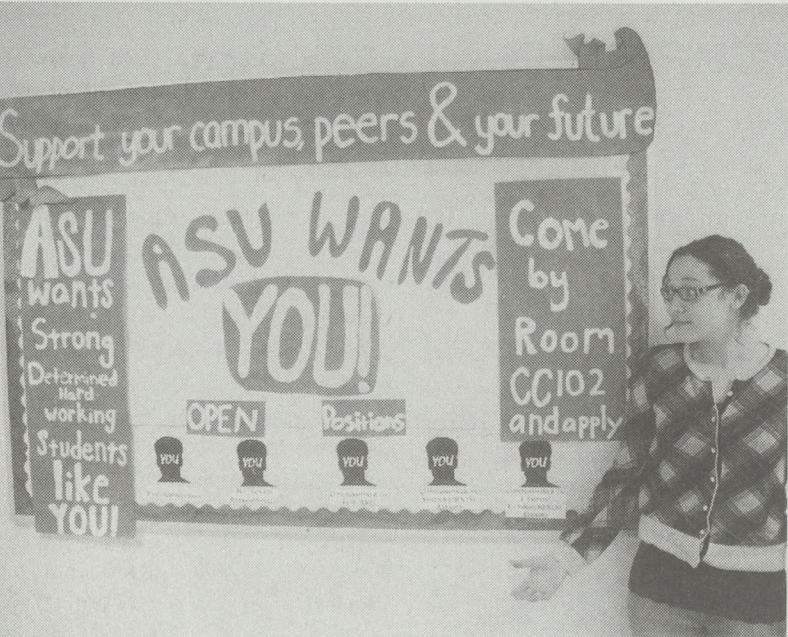 Support your campus, peers & your future
ASU
wants
Strong
Determined
Hard
working
Students
like
YOU!
ASU WANTS
YOU!
OPEN Positions
YOU YOU YOU YOU YOU
Come
by
Room
CC102
and apply